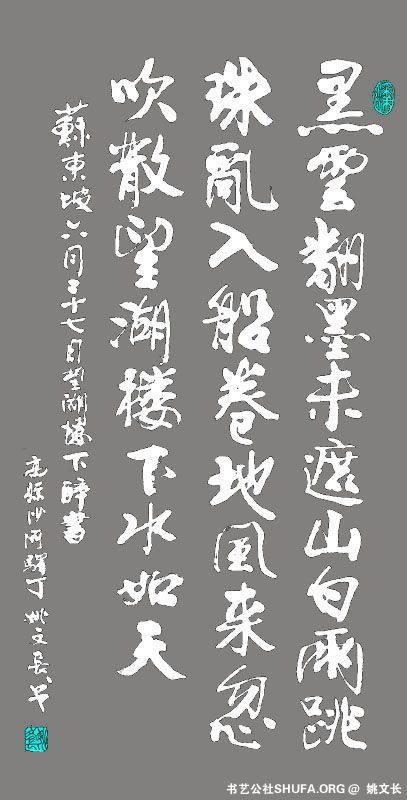 黑雲翻墨未遮山白雨跳
珠亂入船卷地風来忽
吹散望湖楼下水如天
蘇東坡六月二十七日望湖楼下醉書
沙河驛丁 姚文長书
书艺公社SHUFA.ORG @ 姚文长